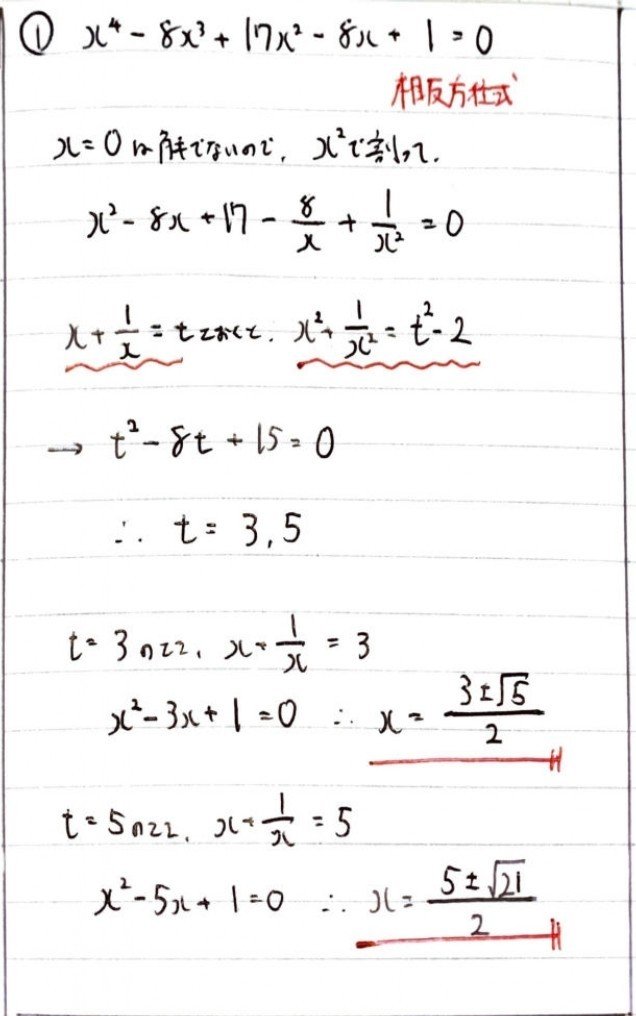 ① x⁴ - 8x³ + 17x² - 8x + 1 = 0
相反方程式
x = 0 は解でないので, x² で割って,
x² - 8x + 17 - 8/x + 1/x² = 0
x + 1/x = t とおくと, x² + 1/x² = t² - 2
→ t² - 8t + 15 = 0
∴ t = 3, 5
t = 3 のとき, x + 1/x = 3
x² - 3x + 1 = 0 ∴ x = (3 ± √5)/2
t = 5 のとき, x + 1/x = 5
x² - 5x + 1 = 0 ∴ x = (5 ± √21)/2